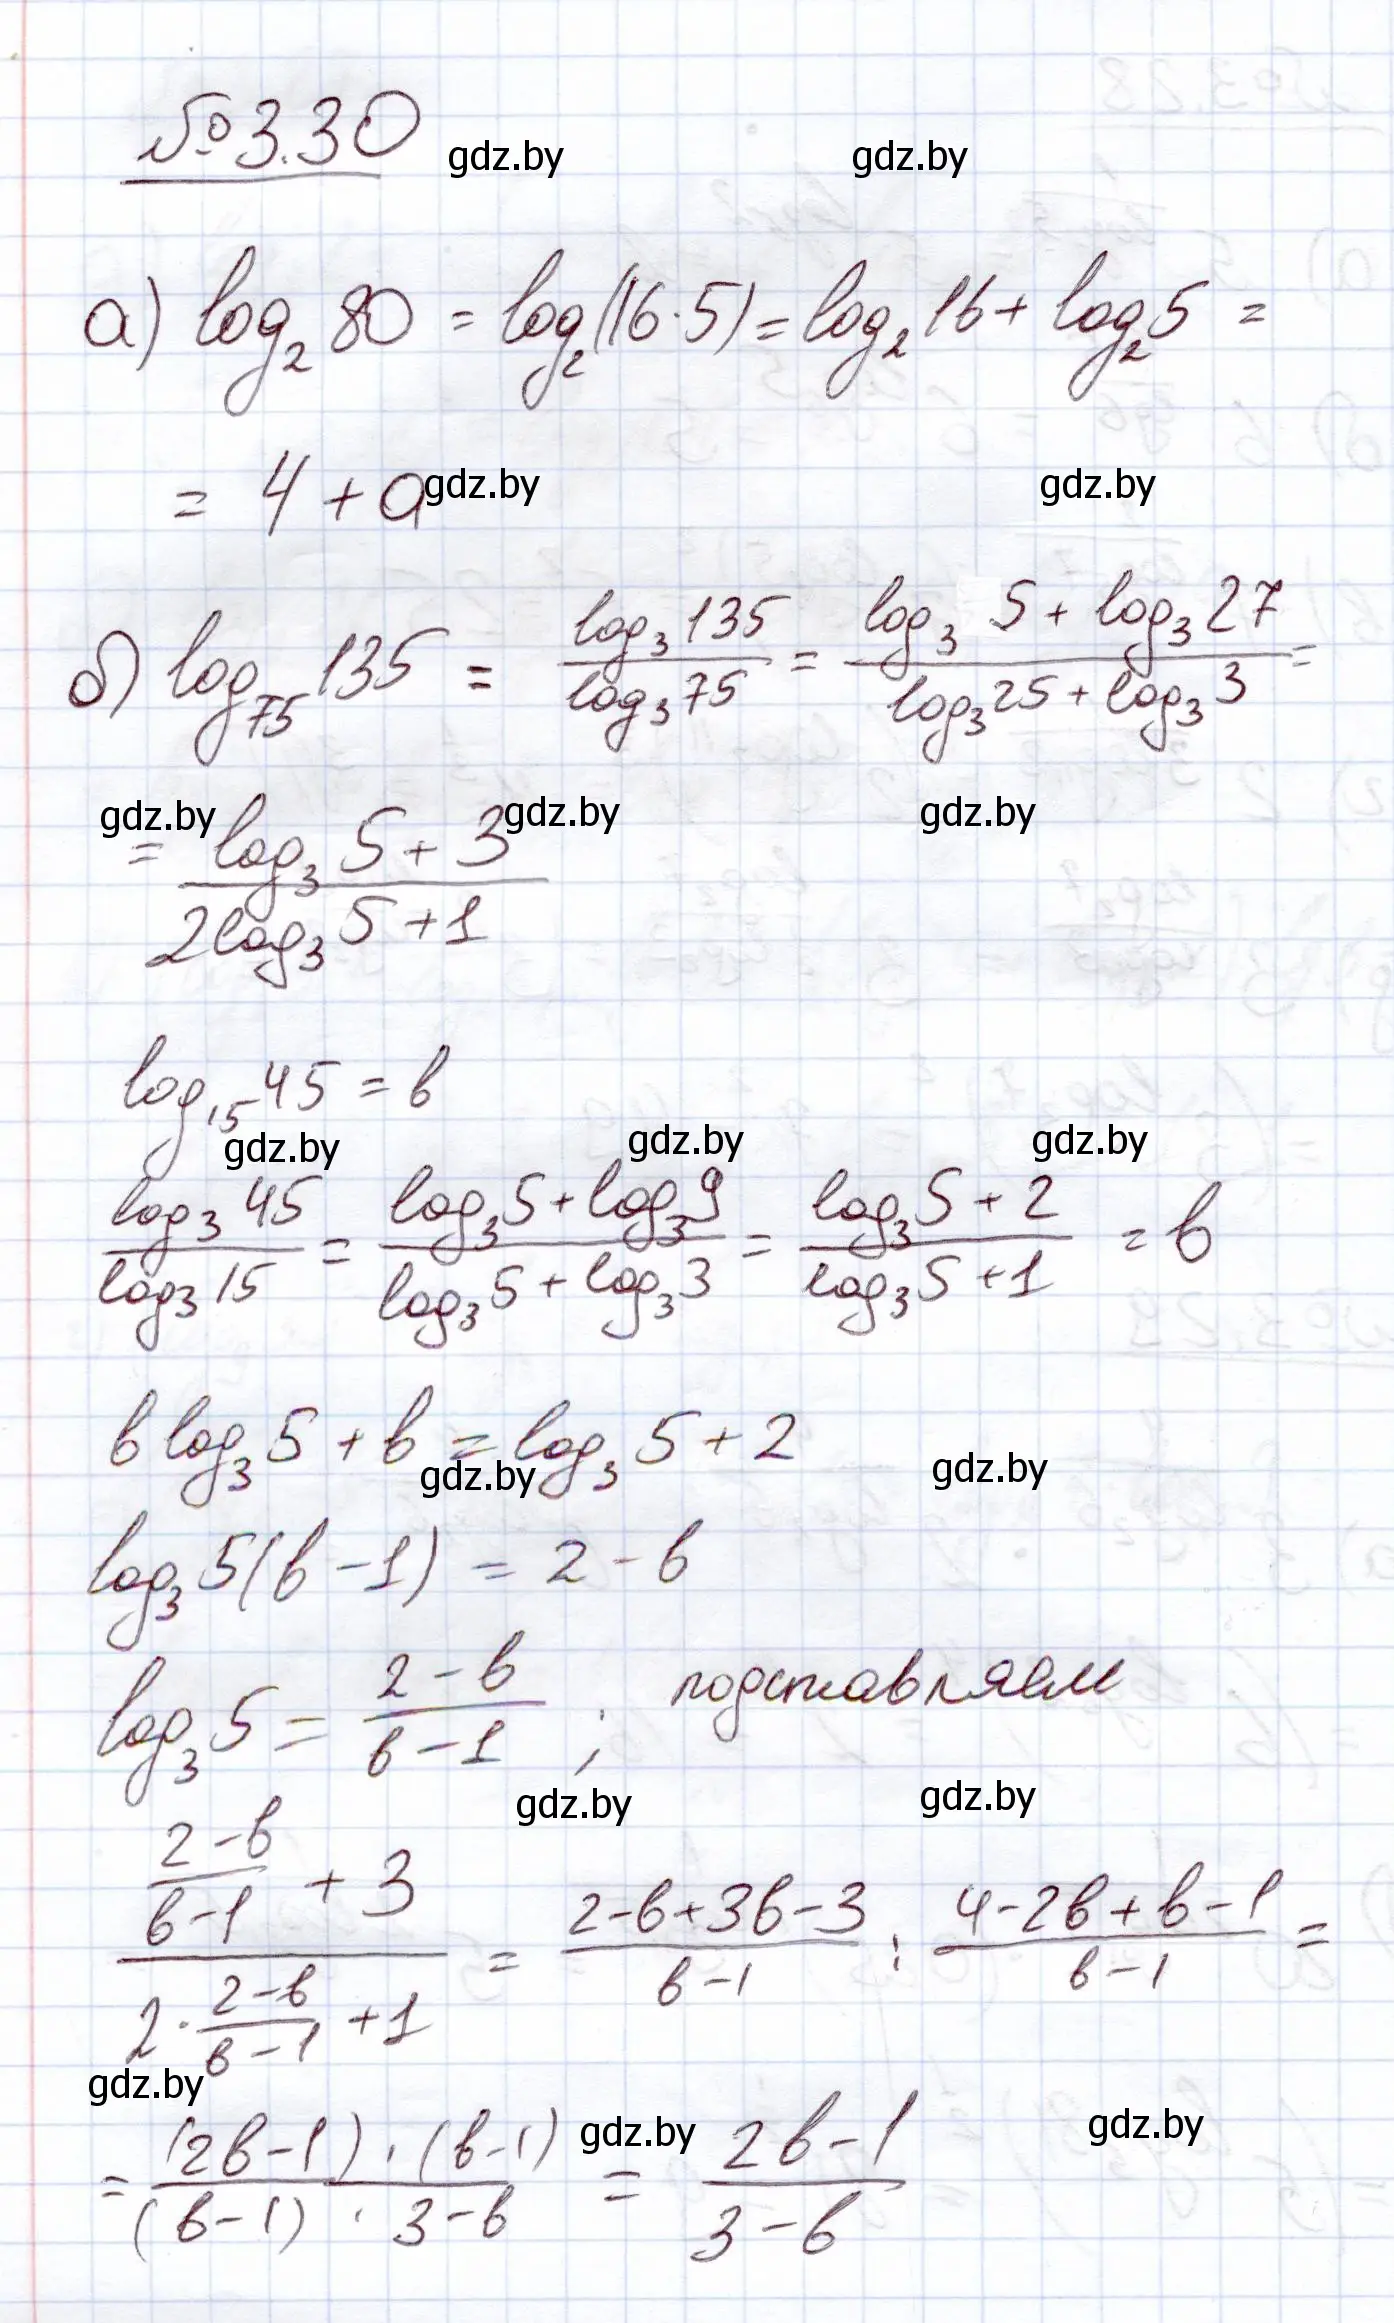 № 3.30
gdz.by gdz.by
а) log₂ 80 = log₂(16·5) = log₂ 16 + log₂ 5 =
= 4 + a
gdz.by gdz.by
б) log₇₅ 135 = log₃ 135 / log₃ 75 = (log₃ 5 + log₃ 27) / (log₃ 25 + log₃ 3) =
gdz.by gdz.by gdz.by
= (log₃ 5 + 3) / (2log₃ 5 + 1)
log₁₅ 45 = b
gdz.by gdz.by gdz.by
log₃ 45 / log₃ 15 = (log₃ 5 + log₃ 9) / (log₃ 5 + log₃ 3) = (log₃ 5 + 2) / (log₃ 5 + 1) = b
b log₃ 5 + b = log₃ 5 + 2
gdz.by gdz.by
log₃ 5(b - 1) = 2 - b
log₃ 5 = (2 - b) / (b - 1) ; подставляем
gdz.by gdz.by
((2 - b) / (b - 1) + 3) / (2 · (2 - b) / (b - 1) + 1) = (2 - b + 3b - 3) / (b - 1) : (4 - 2b + b - 1) / (b - 1) =
gdz.by gdz.by gdz.by
= ((2b - 1) · (b - 1)) / ((b - 1) · 3 - b) = (2b - 1) / (3 - b)